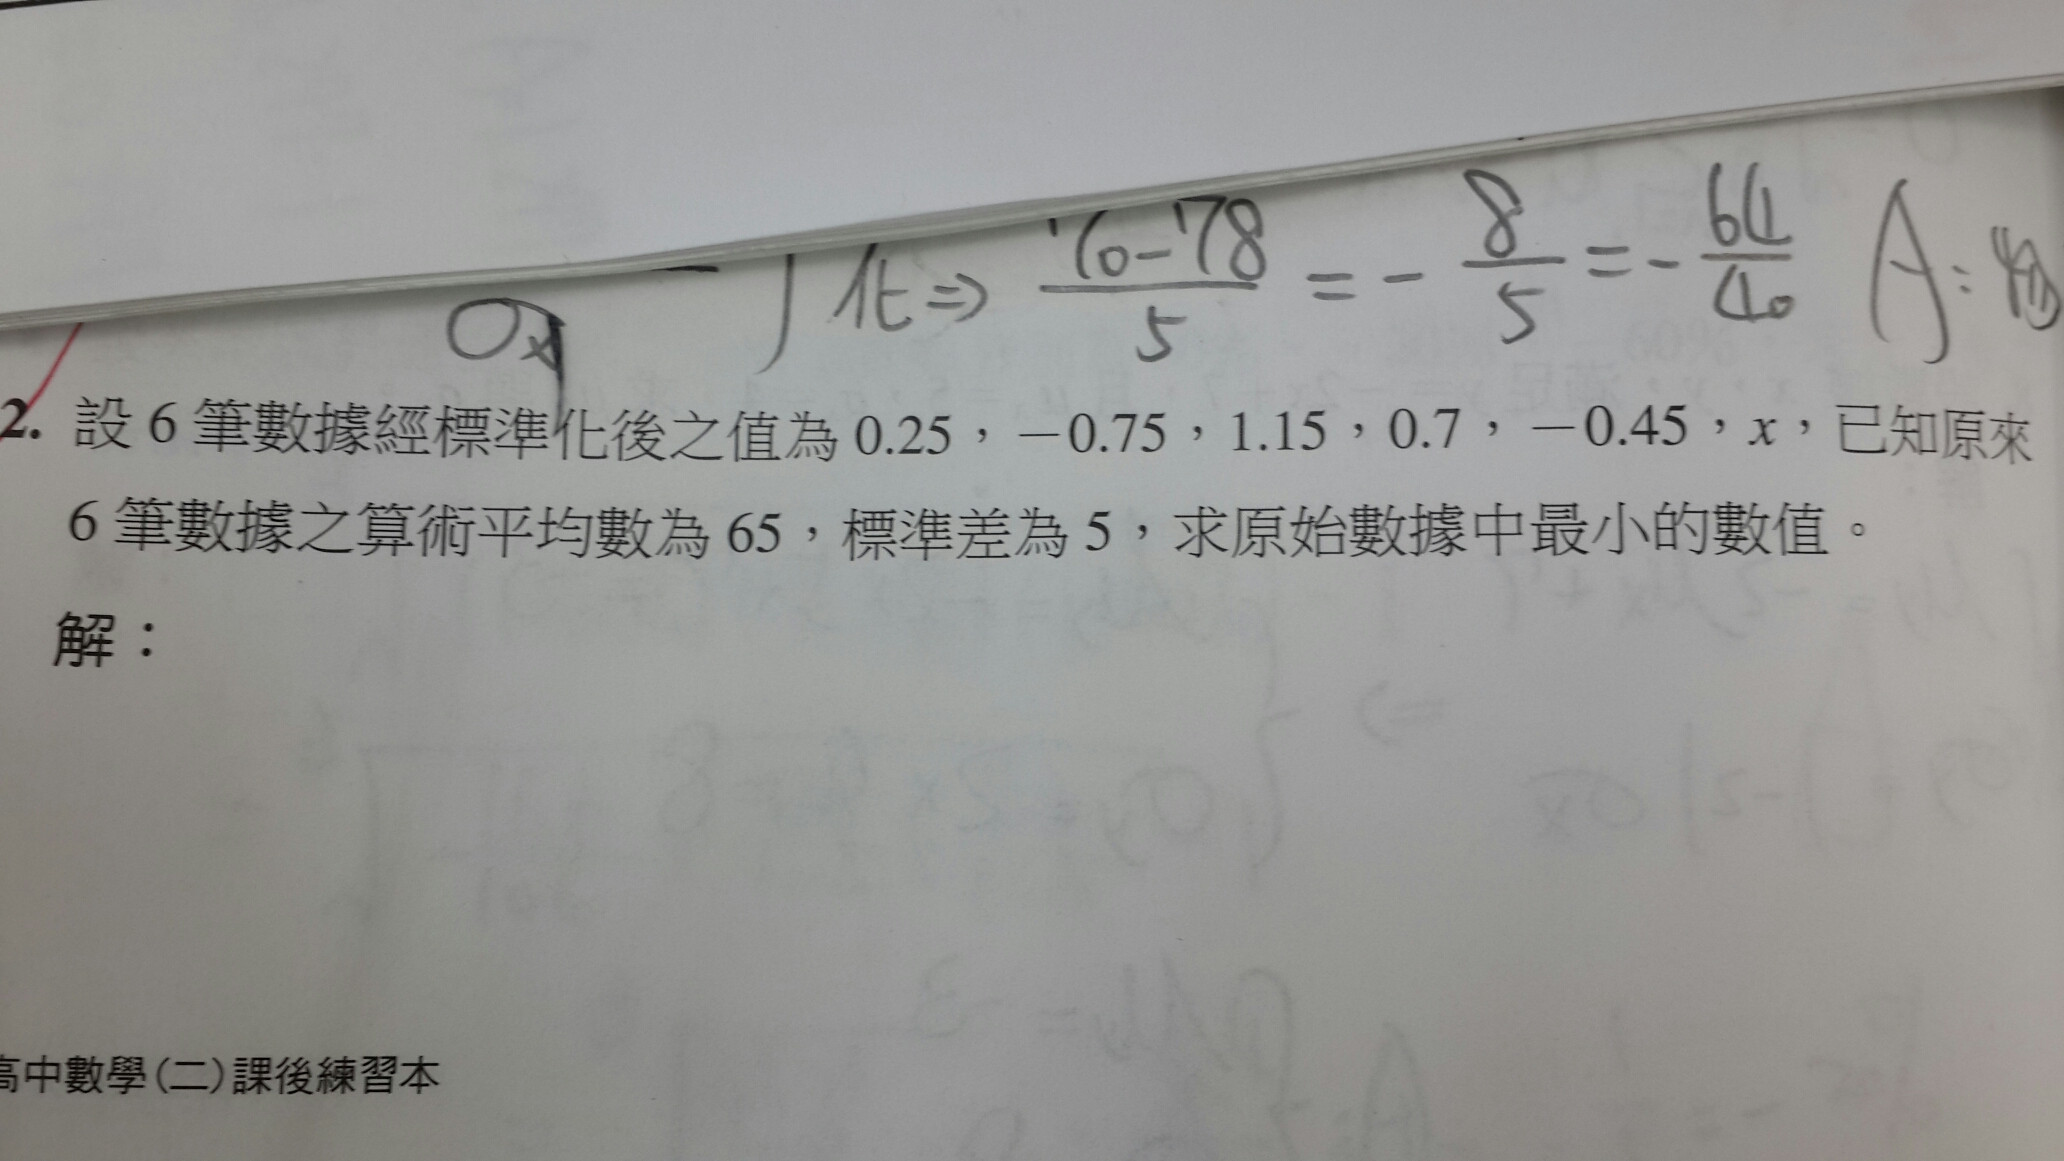 σx 化⇒ 70-78/5 = - 8/5 = - 64/40 A:
2. 設 6 筆數據經標準化後之值為 0.25，－0.75，1.15，0.7，－0.45，x，已知原來
6 筆數據之算術平均數為 65，標準差為 5，求原始數據中最小的數值。
解：
高中數學(二)課後練習本